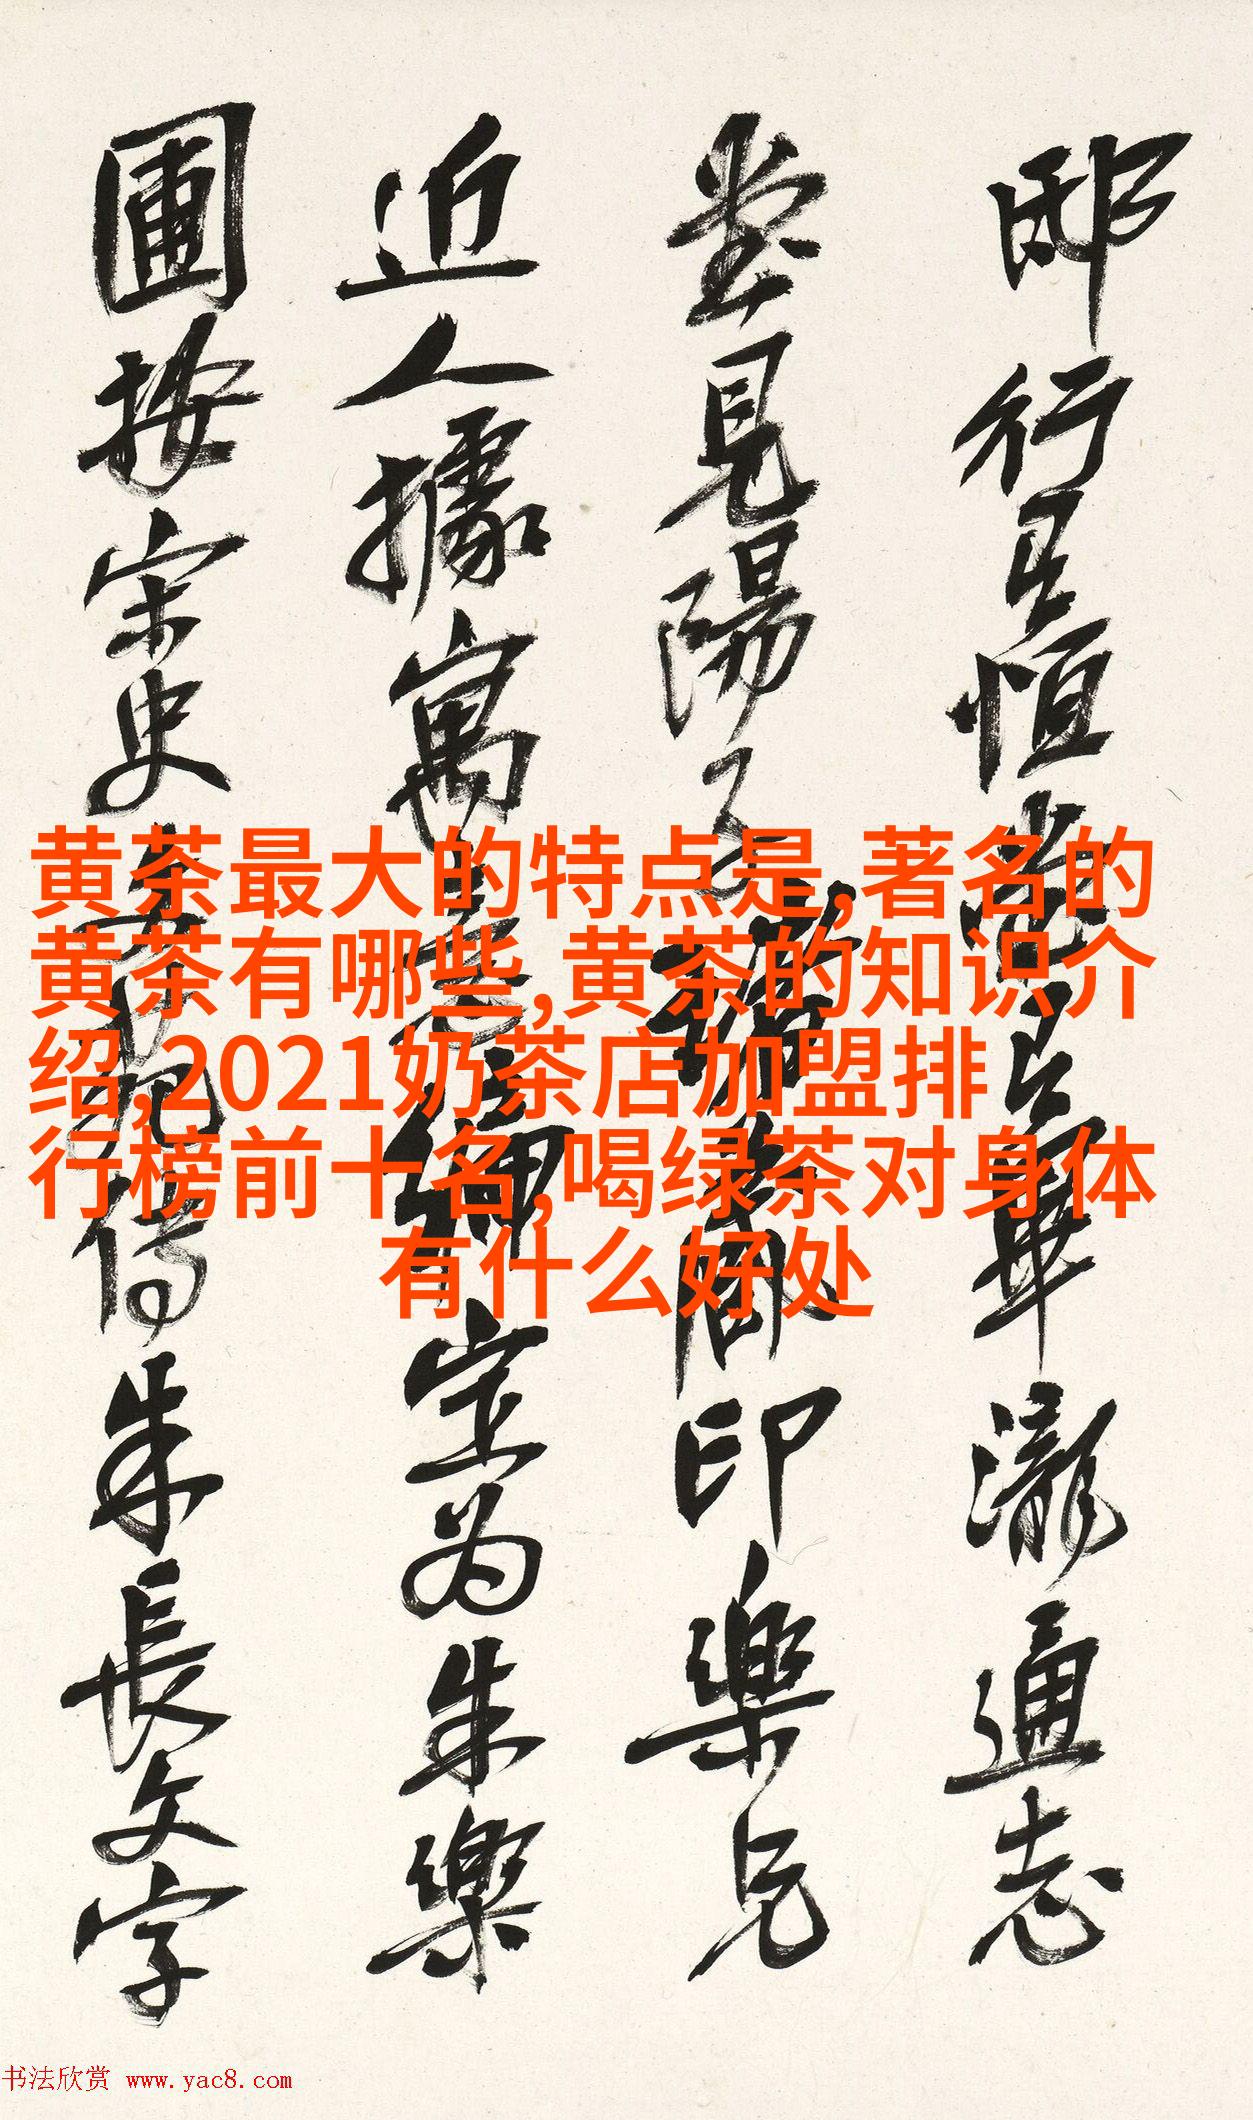 邸行呂恒
通志
堂見陽子
印樂兄
近人據寓
定為朱樂
圃按宋史
傳朱長文字
黄茶最大的特点是,著名的
黄茶有哪些,黄茶的知识介
绍,2021奶茶店加盟排
行榜前十名,喝绿茶对身体
有什么好处
书法欣赏 www.yac8.com